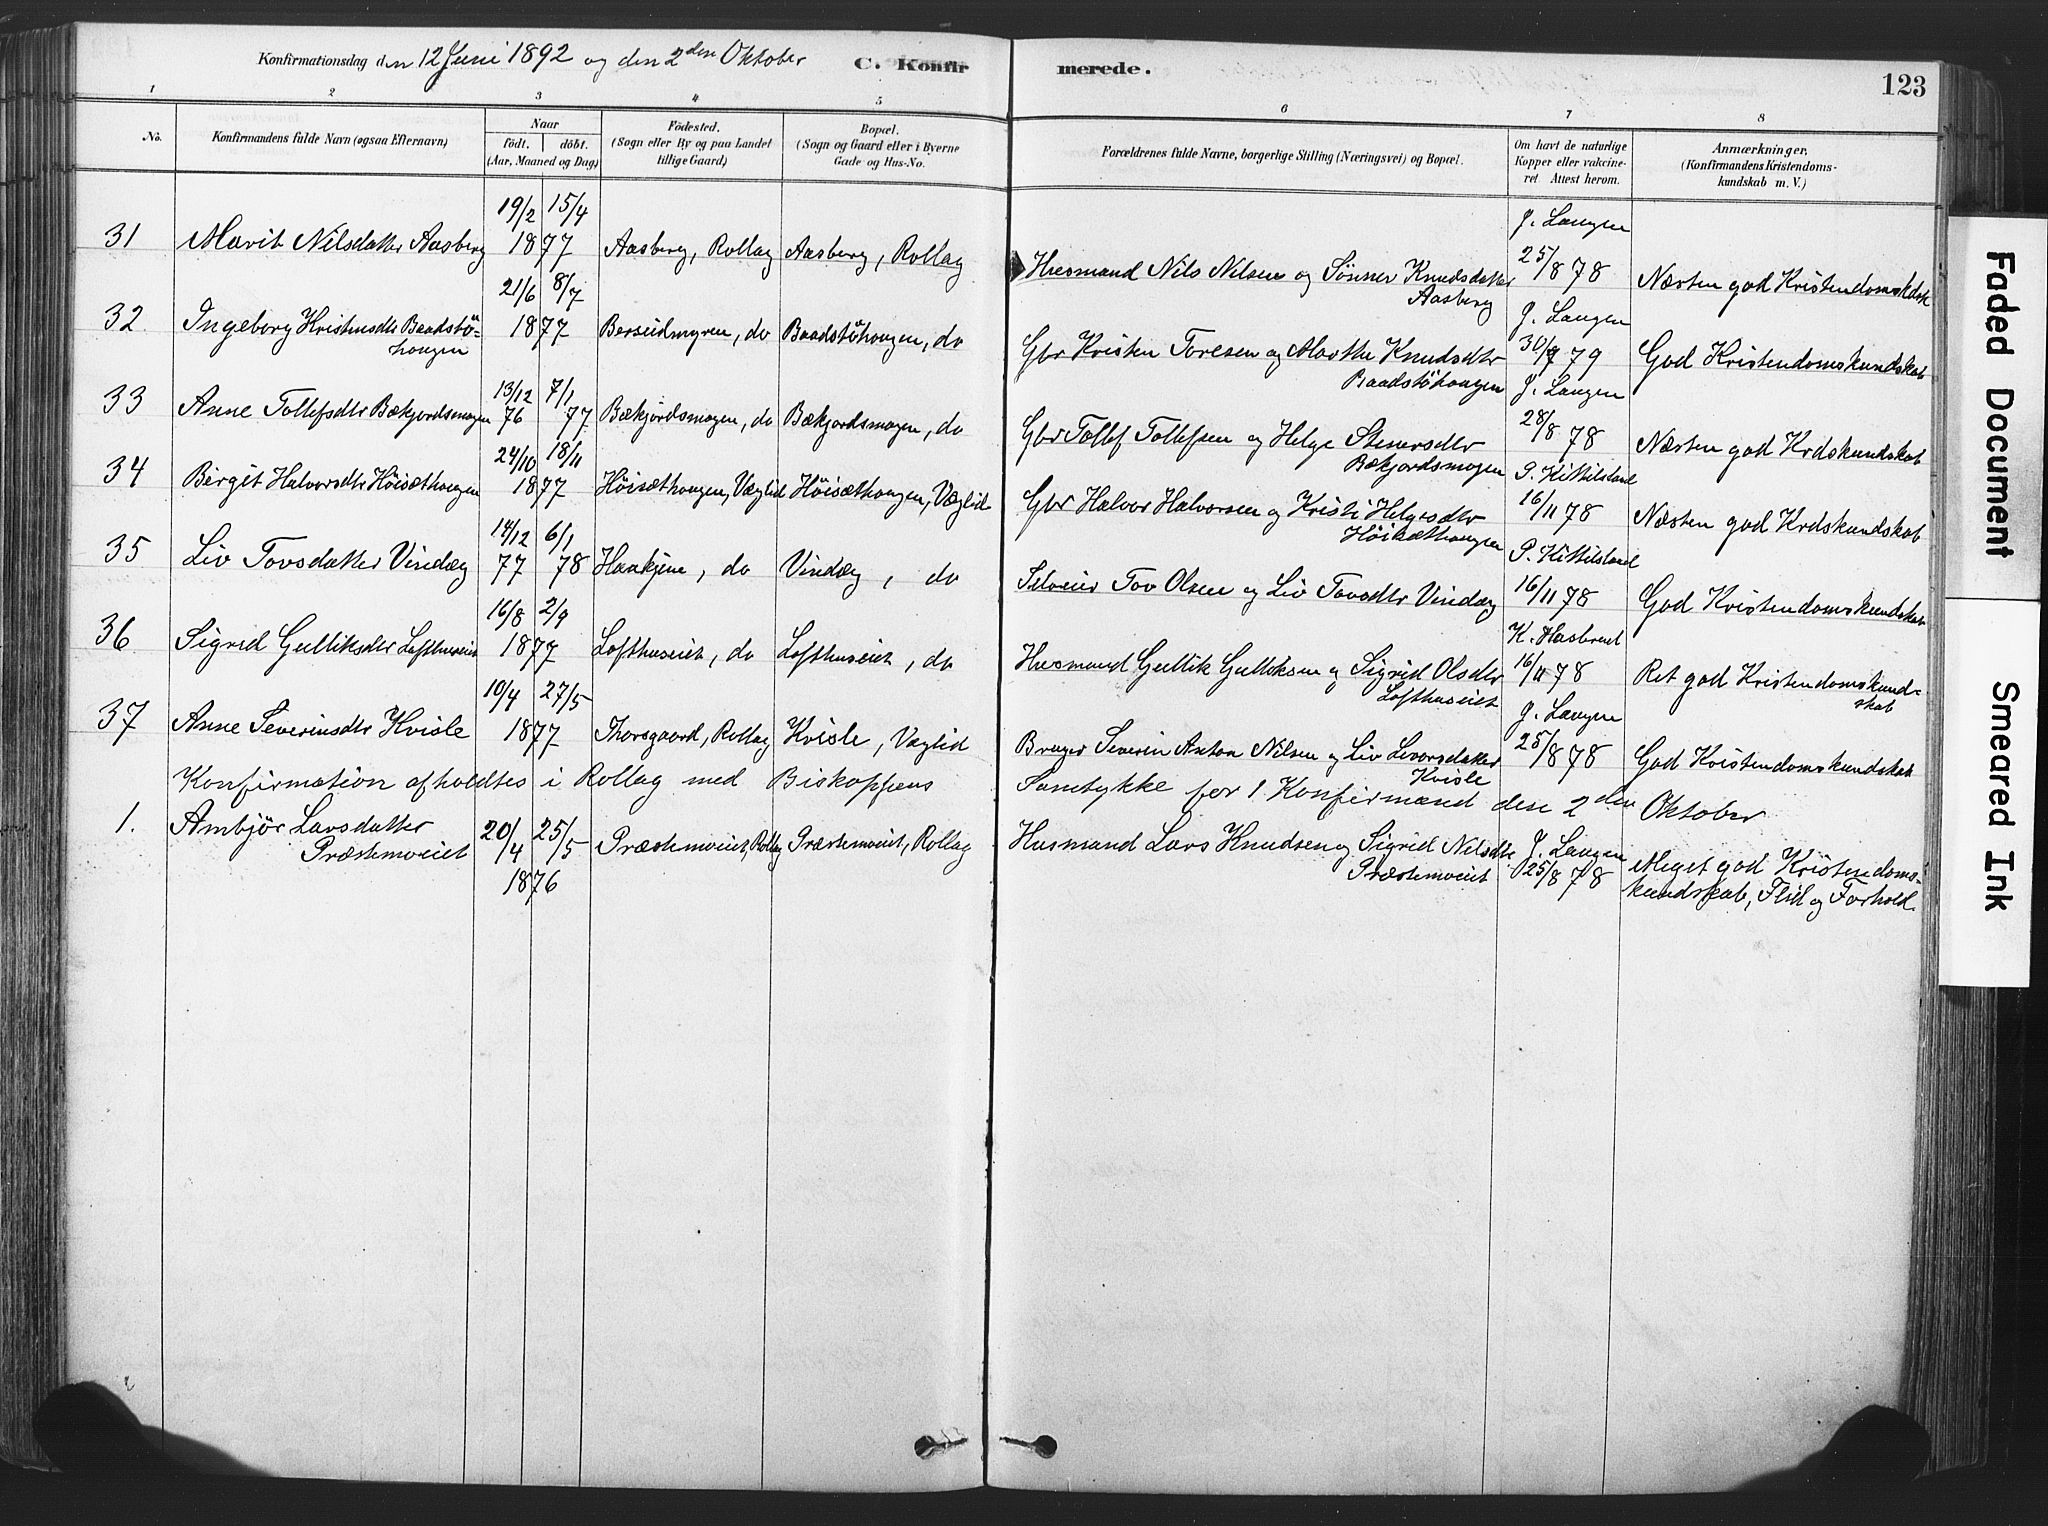 Konfirmationsdag den 12 Juni 1892 og den 2den Oktober C. Konfirmerede. 123
1 2 3 4 5 6 7 8
No. Konfirmandens fulde Navn (ogsaa Efternavn) Naar födt. döbt. (Aar, Maaned og Dag) Födested. (Sogn eller By og paa Landet tillige Gaard) Bopæl. (Sogn og Gaard eller i Byerne Gade og Hus-No. Forældrenes fulde Navne, borgerlige Stilling (Næringsvei) og Bopæl. Om havt de naturlige Kopper eller vakcineret Attest herom. Anmærkninger. (Konfirmandens Kristendomskundskab m. V.)
19/2 15/4 J. Laugen
31 Marit Nilsdatter Aasberg 1877 Aasberg, Rollag Aasberg, Rollag Husmand Nils Nilsen og Sönner Knudsdatter 25/8 78 Næsten god Kristendomskdsk
21/6 8/7 Aasberg J. Laugen
32. Ingeborg Kristensdtr Baadstö- 1877 Berseidmyren, do Baadstöhougen, do Gbr Kristen Toresen og Marthe Knudsdtr 30/7 79 God Kristendomskundskab
hougen Baadstöhougen
13/12 7/1 J. Laugen
33 Anne Tollefsdtr Bækjordsmogen 76 77 Bækjordsmogen, do Bækjordsmogen, do Gbr Tollef Tollefsen og Helge Stenersdtr 28/8 78 Næsten god Krdskundskab
24/10 18/11 Bækjordsmogen P. Kittilsland
34 Birgit Halvorsdtr Höisæthougen 1877 Höisæthougen, Væglid Höisæthougen, Væglid Gbr Halvor Halvorsen og Kristi Helgesdtr 16/11 78 Næsten god Krdskundskab
14/12 6/1 Höisæthougen P. Kittilsland
35 Liv Tovsdatter Vindæg 77 78 Haakjene, do Vindæg, do Selveier Tov Olsen og Liv Tovsdtr Vindæg 16/11 78 God Kristendomskundskab
16/8 2/9 K. Hasbreut
36. Sigrid Gulliksdtr Lofthuseiet 1877 Lofthuseiet, do Lofthuseiet, do Husmand Gullik Gulliksen og Sigrid Olsdtr 16/11 78 Ret god Kristendomskund-
Lofthuseiet skab
10/4 27/5 J. Laugen
37 Anne Severinsdtr Kvisle 1877 Thorsgaard, Rollag Kvisle, Væglid Bruger Severin Anton Nilsen og Liv Levorsdatter 25/8 78 God Kristendomskundskab
Kvisle
Konfirmation afholdtes i Rollag med Biskoppens Samtykke for 1 Konfirmand den 2den Oktober
1. Ambjör Larsdatter 20/4 25/5 Præstemoeiet, Rollag Præstemoeiet, Rollag Husmand Lars Knudsen og Sigrid Nilsdtr J. Laugen Meget god Kristendoms-
Præstemoeiet 1876 Præstemoeiet 25/8 78 kundskab, Flid og Forhold.
Faded Document
Smeared Ink